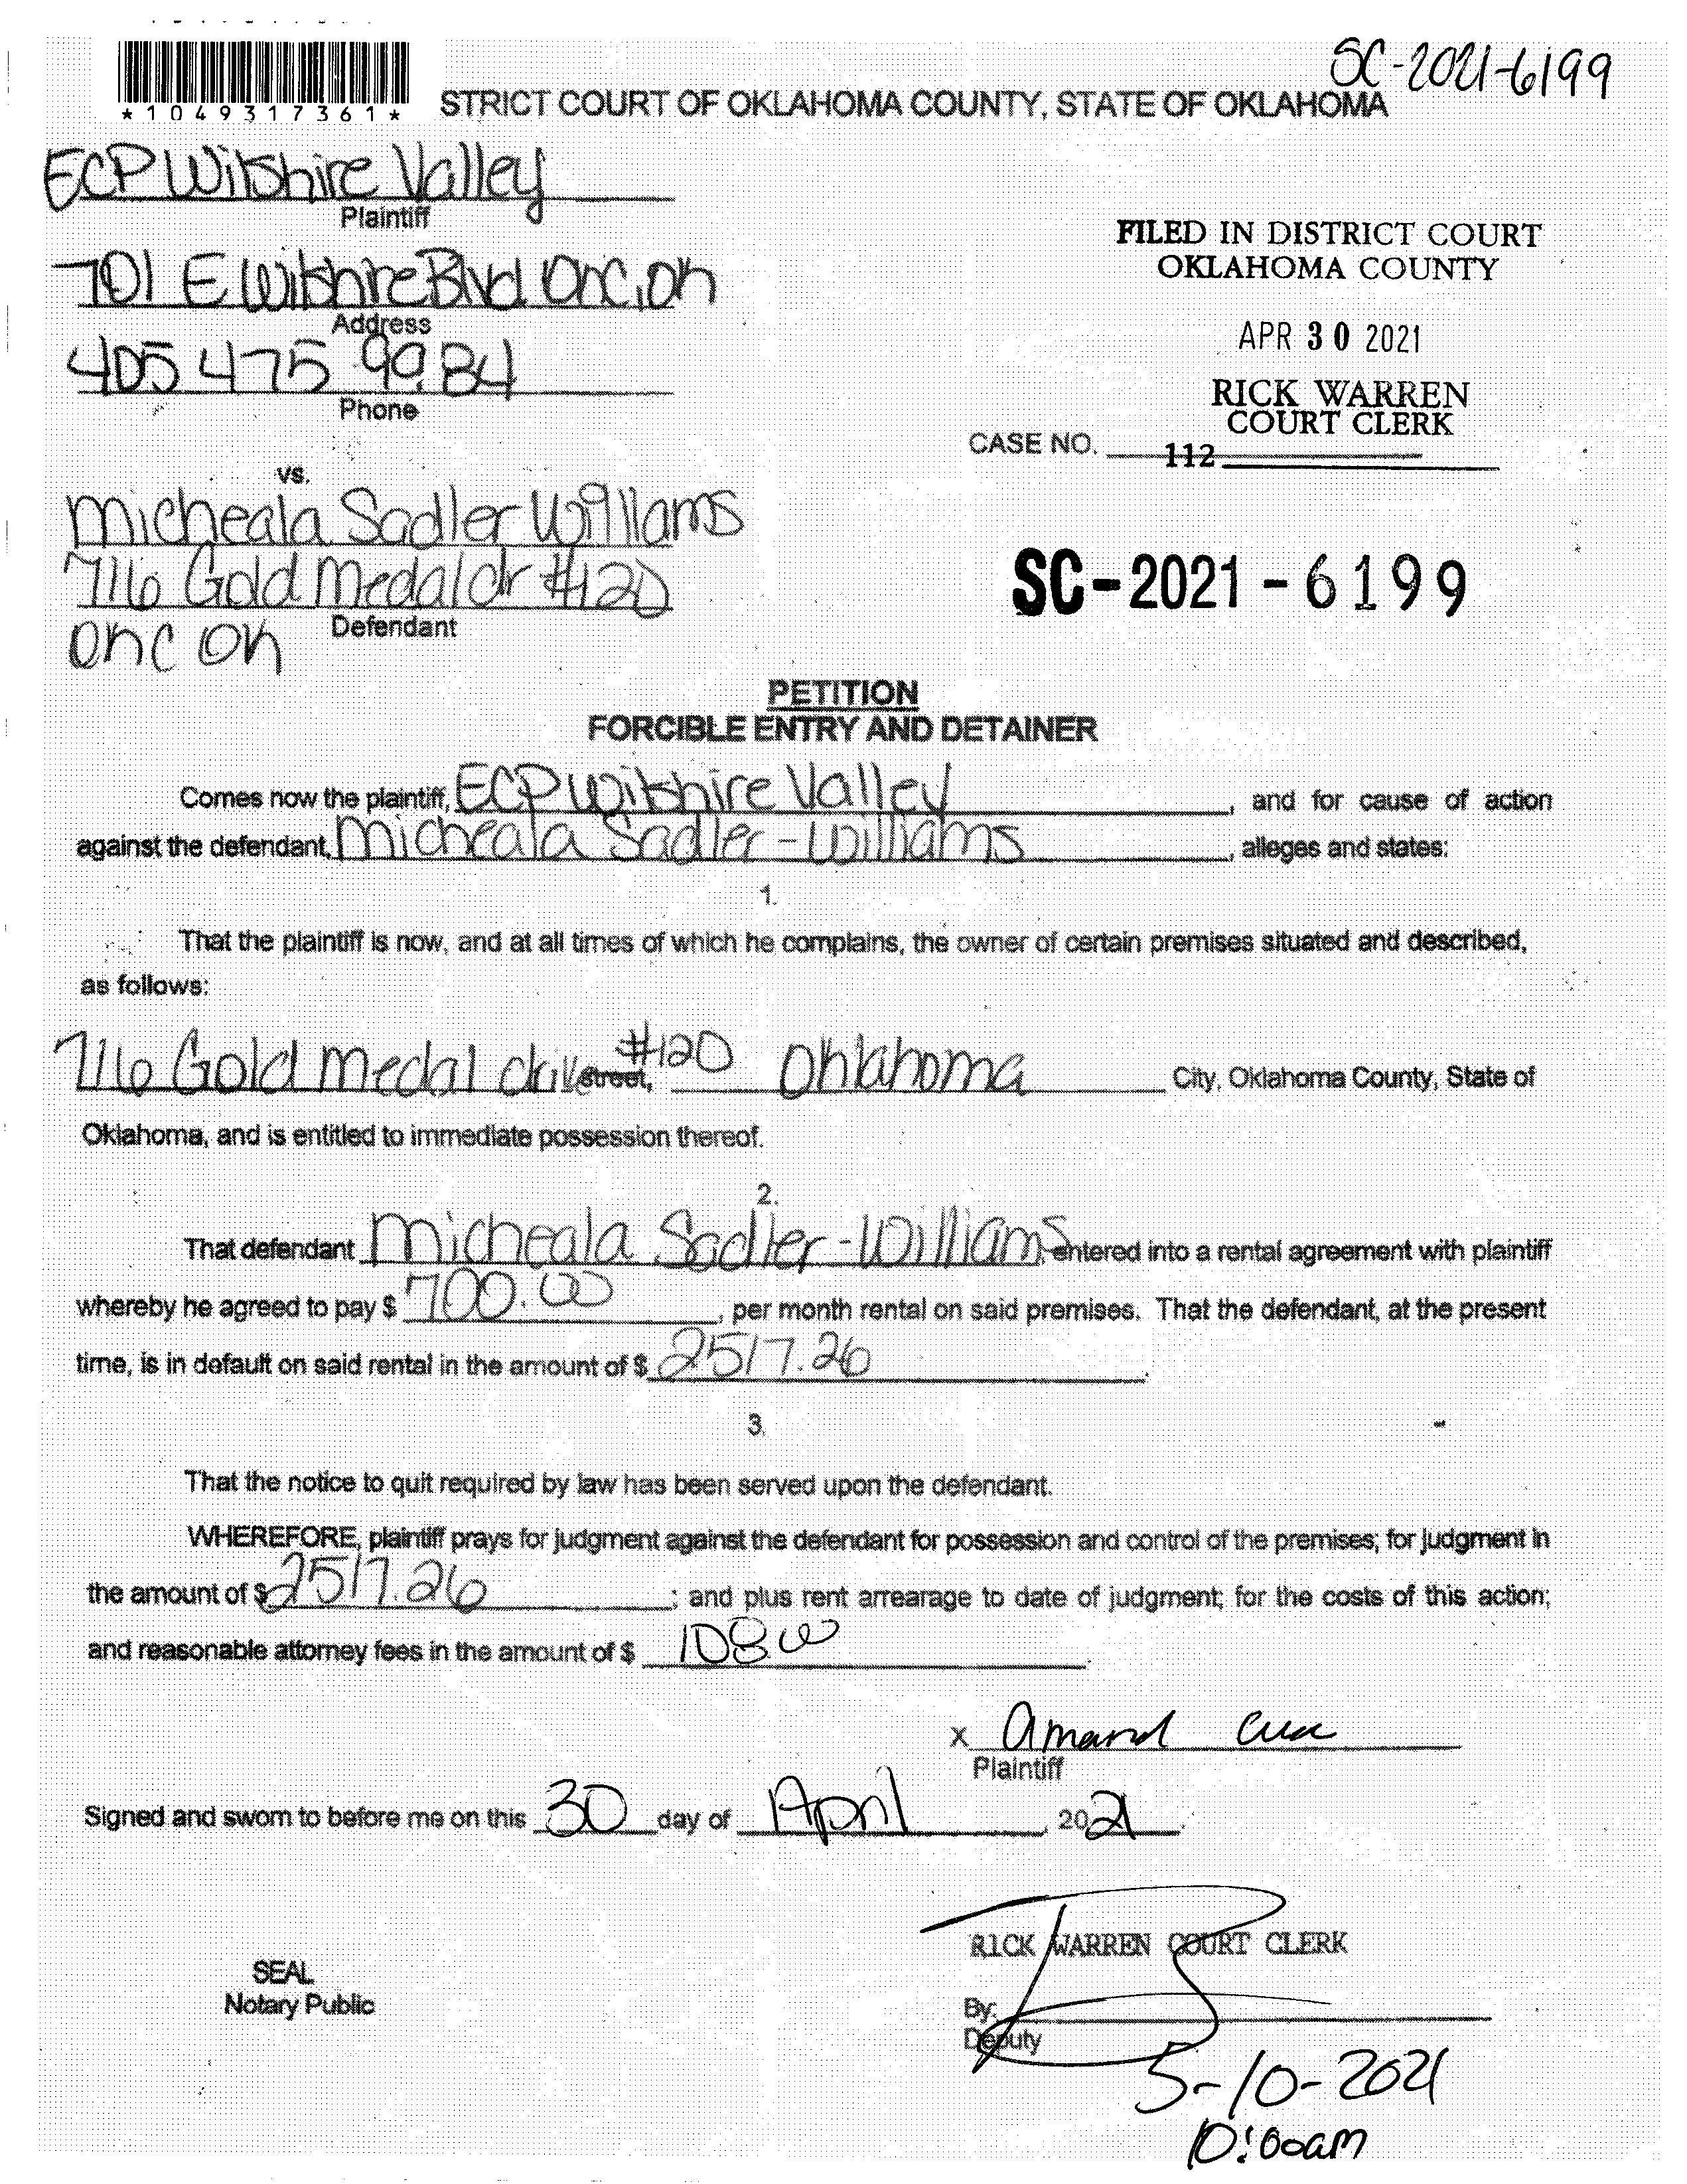 SC-2021-6199
*1049317361*
STRICT COURT OF OKLAHOMA COUNTY, STATE OF OKLAHOMA
ECP Wilshire Valley
Plaintiff
701 E Wilshire Blvd OKC, OK
Address
405 475 9984
Phone
FILED IN DISTRICT COURT
OKLAHOMA COUNTY
APR 30 2021
RICK WARREN
COURT CLERK
CASE NO. 112
vs.
Micheala Sadler Williams
716 Gold Medal dr #120
Defendant
OKC OK
SC-2021-6199
PETITION
FORCIBLE ENTRY AND DETAINER
Comes now the plaintiff, ECP Wilshire Valley, and for cause of action
against the defendant, Micheala Sadler-Williams, alleges and states:
1.
That the plaintiff is now, and at all times of which he complains, the owner of certain premises situated and described,
as follows:
716 Gold Medal drive street, #120 Oklahoma City, Oklahoma County, State of
Oklahoma, and is entitled to immediate possession thereof.
2.
That defendant Micheala Sadler-Williams, entered into a rental agreement with plaintiff
whereby he agreed to pay $ 700.00, per month rental on said premises. That the defendant, at the present
time, is in default on said rental in the amount of $ 2517.26.
3.
That the notice to quit required by law has been served upon the defendant.
WHEREFORE, plaintiff prays for judgment against the defendant for possession and control of the premises; for judgment in
the amount of $ 2517.26; and plus rent arrearage to date of judgment; for the costs of this action;
and reasonable attorney fees in the amount of $ 108.00.
X Amand
Plaintiff
Signed and sworn to before me on this 30 day of April, 2021.
RICK WARREN COURT CLERK
SEAL
Notary Public
By:
Deputy
5-10-2021
10:00am